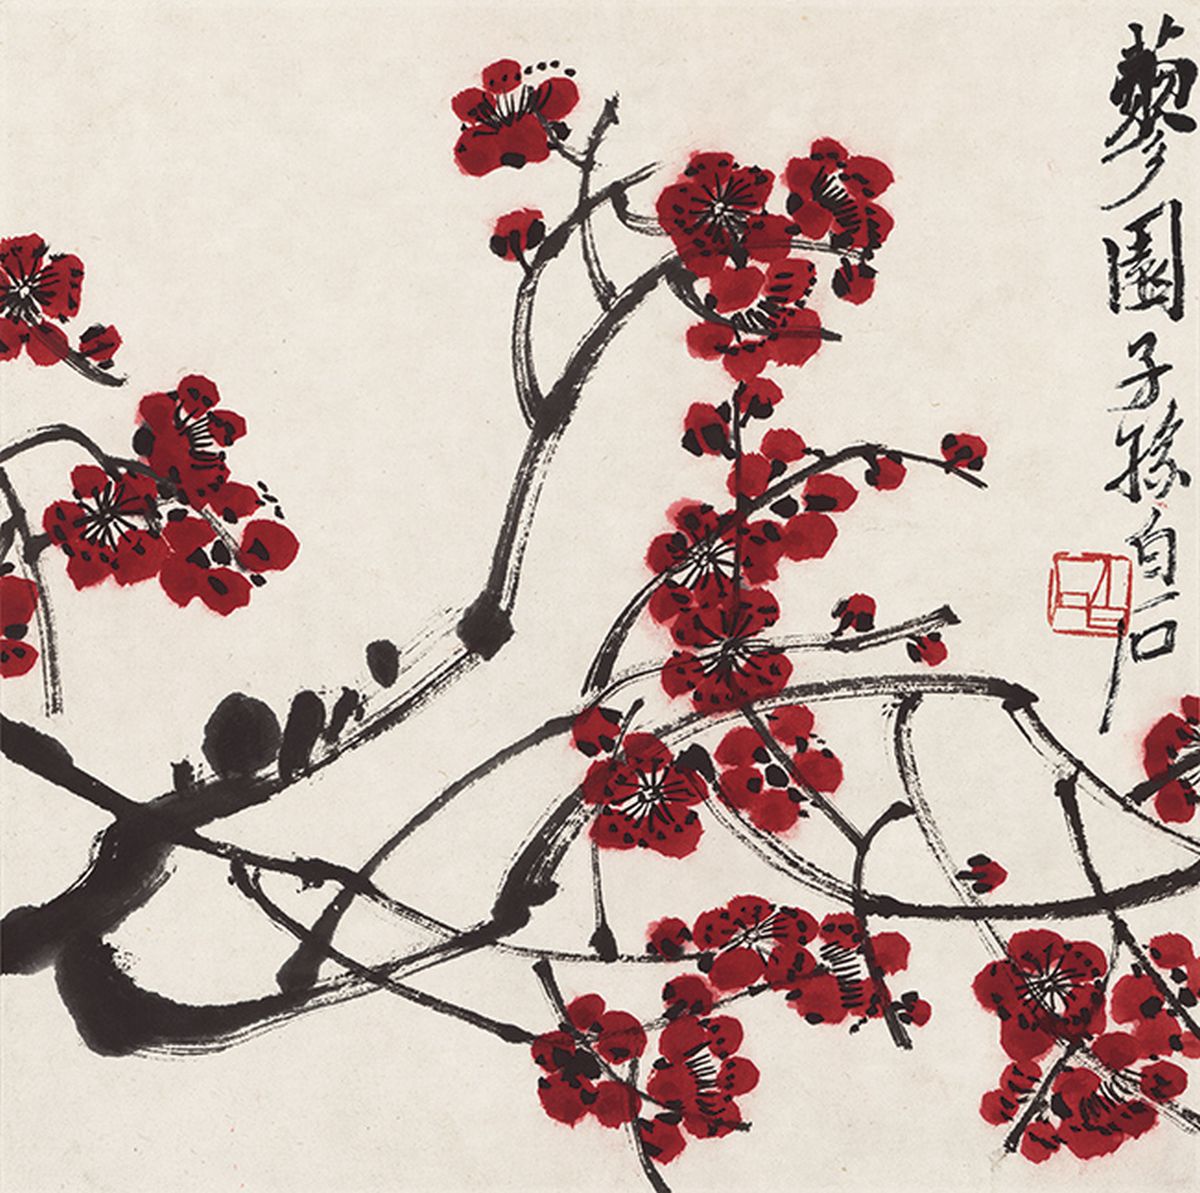 蓼園子孫白石